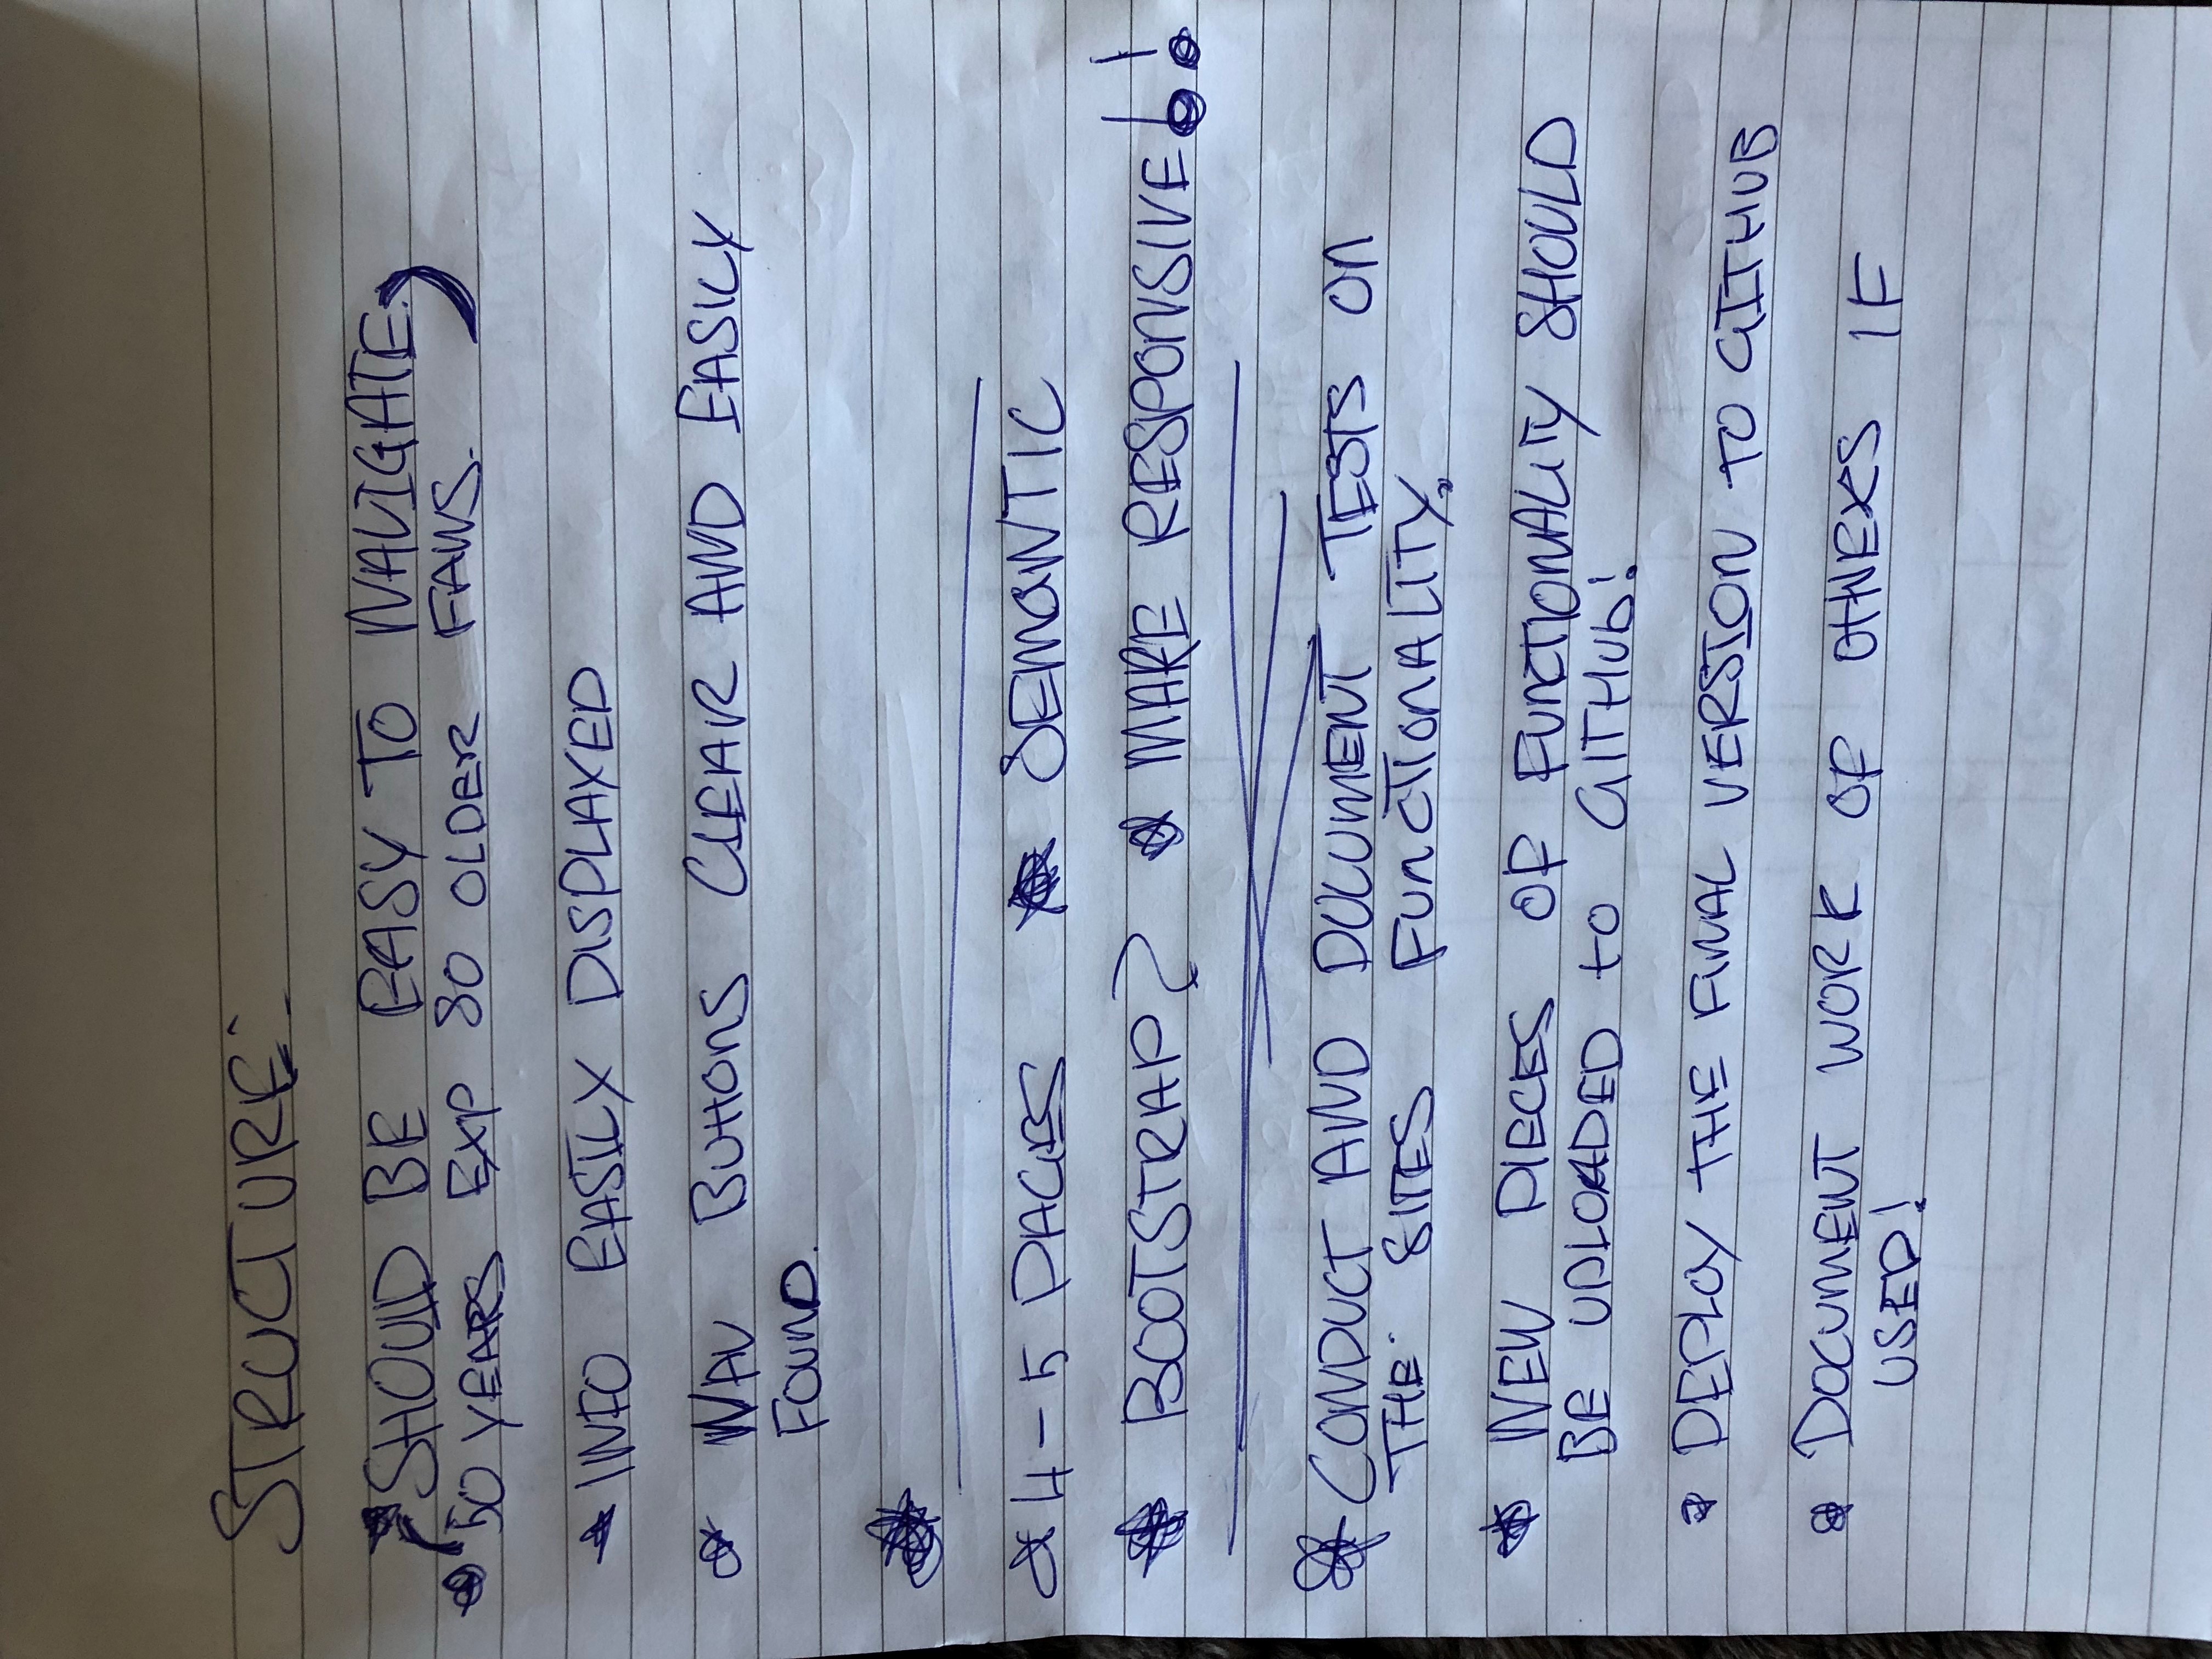 STRUCTURE:
* SHOULD BE EASY TO NAVIGATE.
* 50 YEARS EXP SO OLDER FANS.
* INFO EASILY DISPLAYED
* NAV BUttONS CLEAR AND EASILY
FOUND.
*
* 4-5 PAGES * SEMANTIC
* BOOTSTRAP? * MAKE RESPONSIVE!!
* CONDUCT AND DOCUMENT TESTS ON
THE SITES FUNCTIONALITY.
* NEW PIECES OF FUNCTIONALITY SHOULD
BE UPLOADED to GITHUb!
* DEPLOY THE FINAL VERSION TO GITHUB
* DOCUMENT WORK OF OTHERS IF
USED!